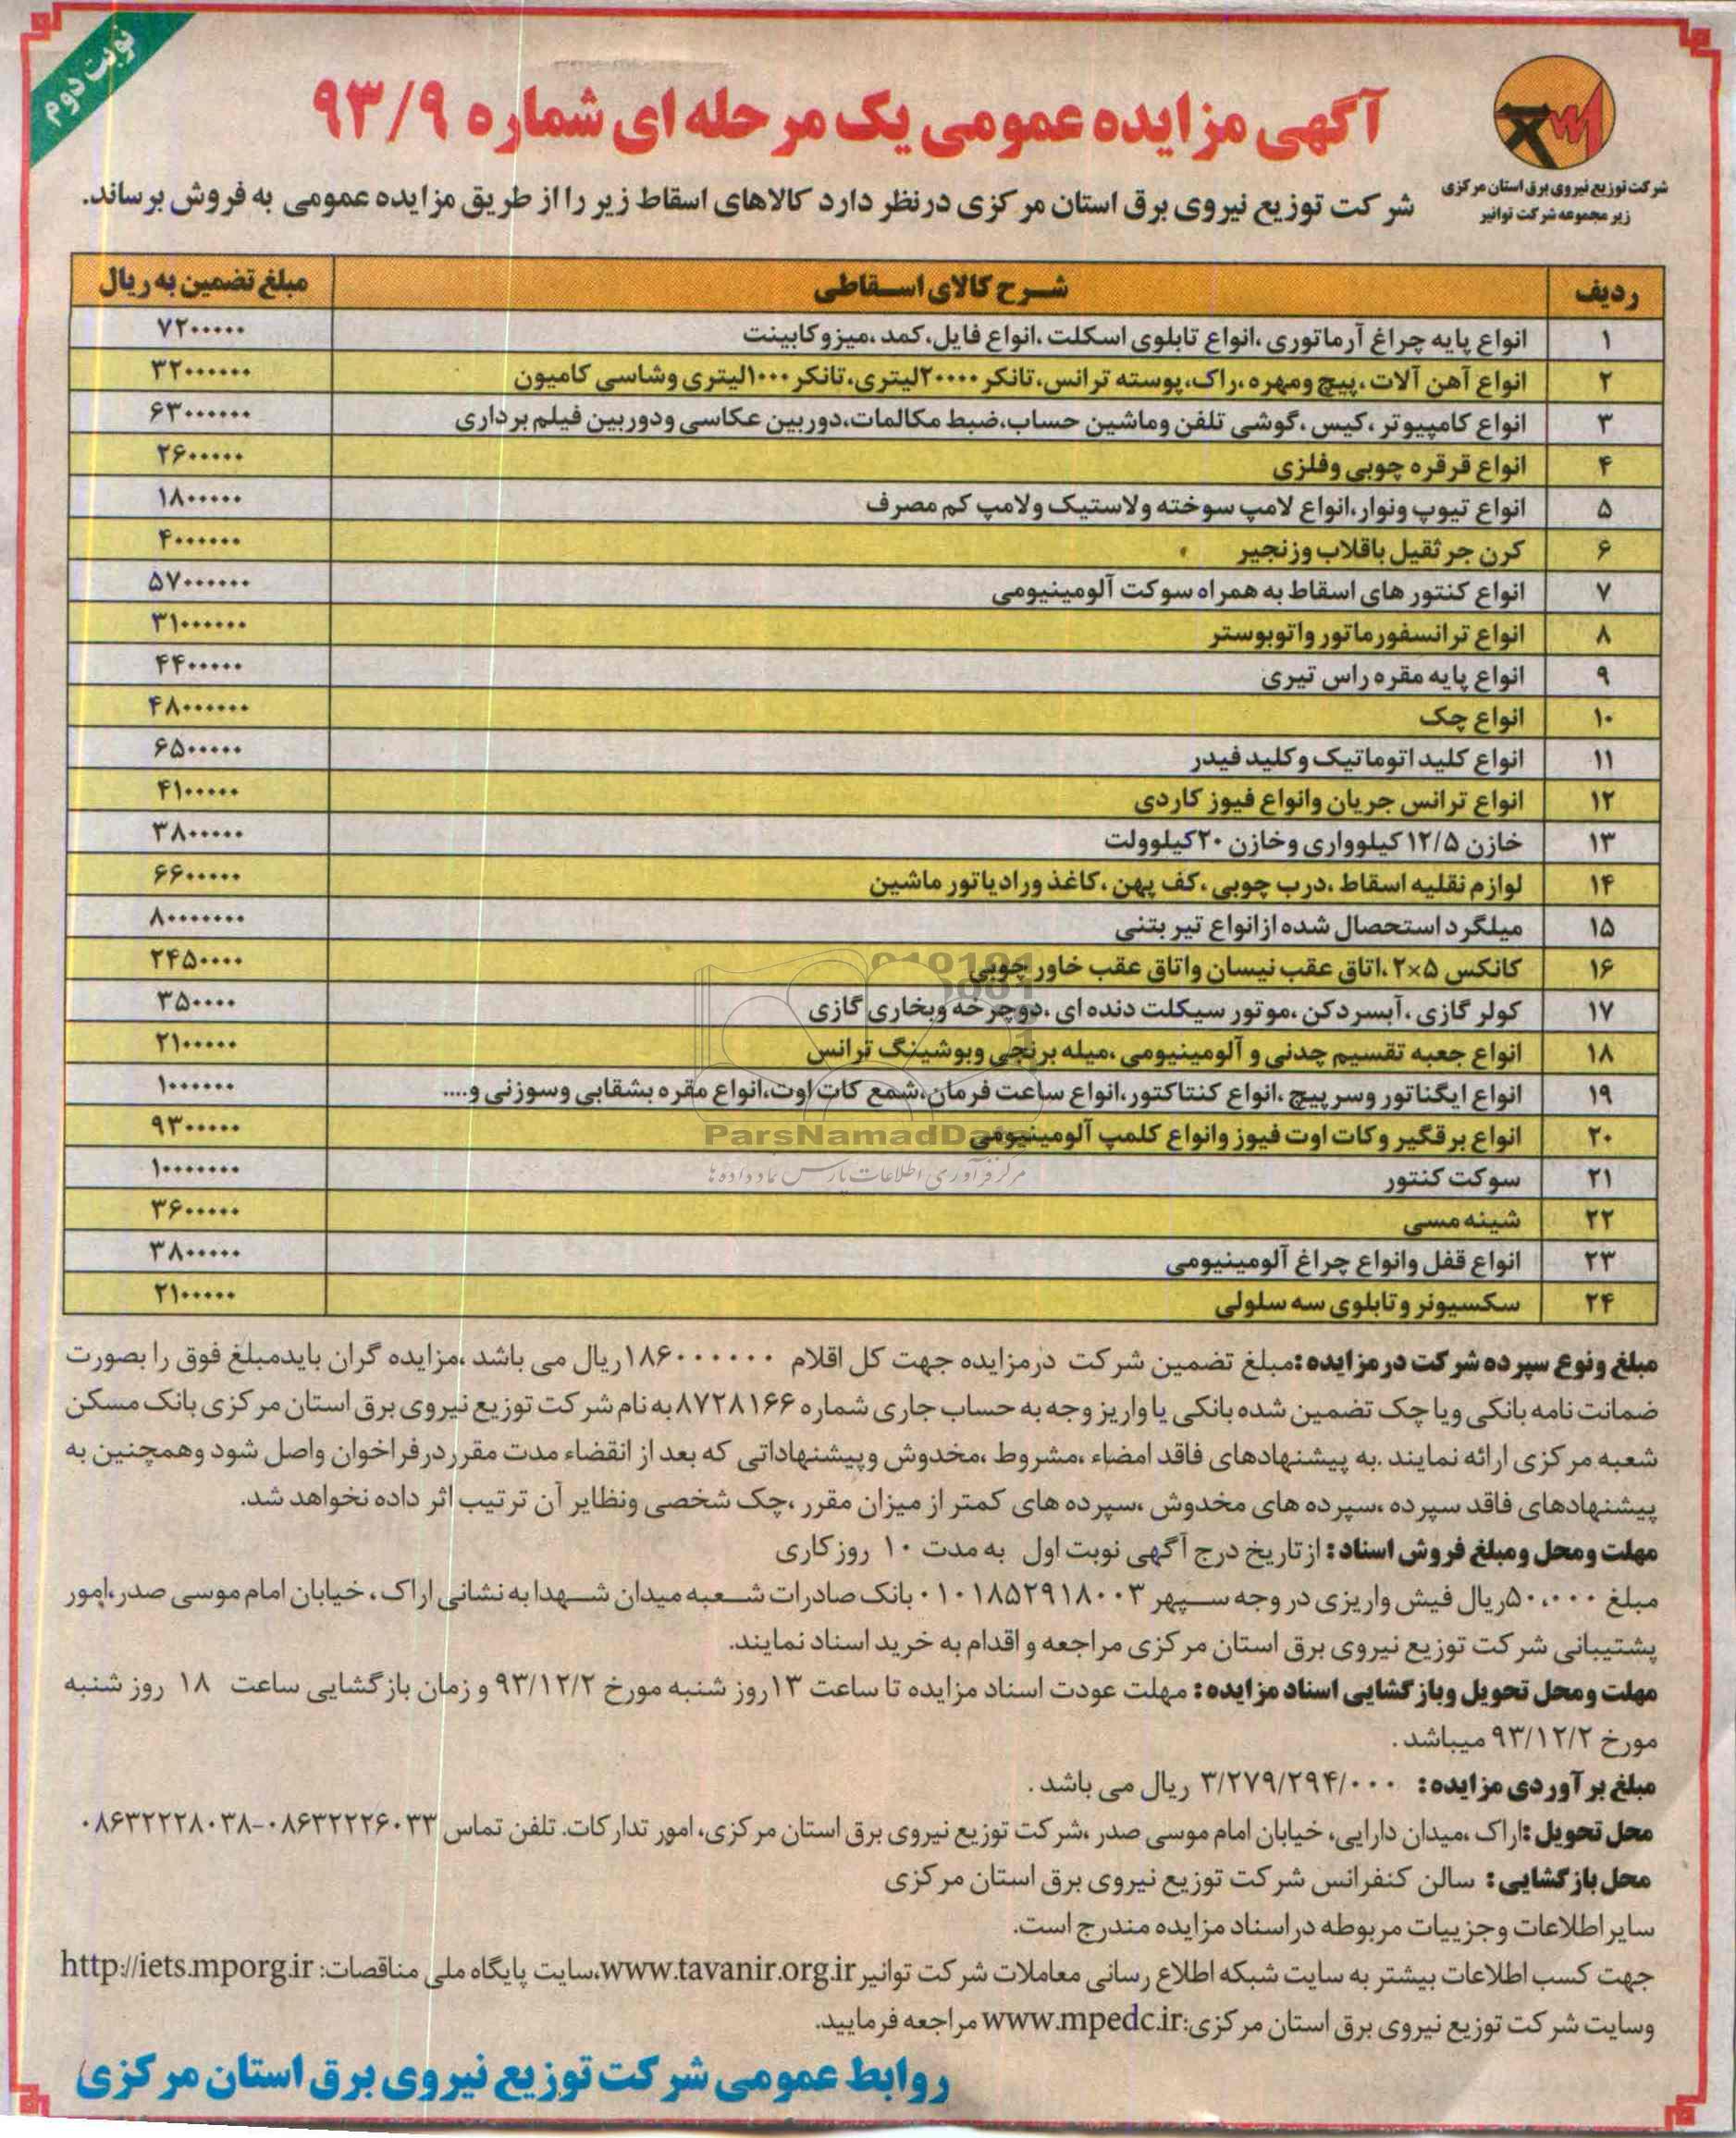 نوبت دوم
آگهی مزایده عمومی یک مرحله ای شماره ۹۳/۹
شرکت توزیع نیروی برق استان مرکزی
زیر مجموعه شرکت توانیر
شرکت توزیع نیروی برق استان مرکزی درنظر دارد کالاهای اسقاط زیر را از طریق مزایده عمومی به فروش برساند.
ردیف شرح کالای اسقاطی مبلغ تضمین به ریال
۱ انواع پایه چراغ آرماتوری ،انواع تابلوی اسکلت ،انواع فایل،کمد ،میزوکابینت ۷۲۰۰۰۰۰
۲ انواع آهن آلات ،پیچ ومهره ،راک،پوسته ترانس،تانکر ۲۰۰۰۰لیتری،تانکر ۱۰۰۰لیتری وشاسی کامیون ۳۲۰۰۰۰۰۰
۳ انواع کامپیوتر ،کیس ،گوشی تلفن وماشین حساب،ضبط مکالمات،دوربین عکاسی ودوربین فیلم برداری ۶۳۰۰۰۰۰۰
۴ انواع قرقره چوبی وفلزی ۲۶۰۰۰۰۰
۵ انواع تیوپ ونوار،انواع لامپ سوخته ولاستیک ولامپ کم مصرف ۱۸۰۰۰۰۰
۶ کرن جرثقیل باقلاب وزنجیر ۴۰۰۰۰۰۰
۷ انواع کنتور های اسقاط به همراه سوکت آلومینیومی ۵۷۰۰۰۰۰۰
۸ انواع ترانسفورماتور واتوبوستر ۳۱۰۰۰۰۰۰
۹ انواع پایه مقره راس تیری ۴۴۰۰۰۰۰
۱۰ انواع چک ۴۸۰۰۰۰۰۰
۱۱ انواع کلید اتوماتیک وکلید فیدر ۶۵۰۰۰۰۰
۱۲ انواع ترانس جریان وانواع فیوز کاردی ۴۱۰۰۰۰۰
۱۳ خازن ۱۲/۵ کیلوواری وخازن ۲۰کیلوولت ۳۸۰۰۰۰۰
۱۴ لوازم نقلیه اسقاط ،درب چوبی ،کف پهن ،کاغذ ورادیاتور ماشین ۶۶۰۰۰۰۰
۱۵ میلگرد استحصال شده ازانواع تیر بتنی ۸۰۰۰۰۰۰۰
۱۶ کانکس ۵×۲ ،اتاق عقب نیسان واتاق عقب خاور چوبی ۲۴۵۰۰۰۰
۱۷ کولر گازی ،آبسردکن ،موتور سیکلت دنده ای ،دوچرخه وبخاری گازی ۳۵۰۰۰۰
۱۸ انواع جعبه تقسیم چدنی و آلومینیومی ،میله برنجی وبوشینگ ترانس ۲۱۰۰۰۰۰
۱۹ انواع ایگناتور وسرپیچ ،انواع کنتاکتور،انواع ساعت فرمان،شمع کات اوت،انواع مقره بشقابی وسوزنی و.... ۱۰۰۰۰۰۰
۲۰ انواع برقگیر وکات اوت فیوز وانواع کلمپ آلومینیومی ۹۳۰۰۰۰۰
۲۱ سوکت کنتور ۱۰۰۰۰۰۰۰
۲۲ شینه مسی ۳۶۰۰۰۰۰
۲۳ انواع قفل وانواع چراغ آلومینیومی ۳۸۰۰۰۰۰
۲۴ سکسیونر وتابلوی سه سلولی ۲۱۰۰۰۰۰
ParsNamadData
مرکز فرآوری اطلاعات پارس نماد داده ها
مبلغ ونوع سپرده شرکت درمزایده :مبلغ تضمین شرکت درمزایده جهت کل اقلام ۱۸۶۰۰۰۰۰۰ریال می باشد ،مزایده گران بایدمبلغ فوق را بصورت
ضمانت نامه بانکی ویا چک تضمین شده بانکی یا واریز وجه به حساب جاری شماره ۸۷۲۸۱۶۶به نام شرکت توزیع نیروی برق استان مرکزی بانک مسکن
شعبه مرکزی ارائه نمایند .به پیشنهادهای فاقد امضاء ،مشروط ،مخدوش وپیشنهاداتی که بعد از انقضاء مدت مقرردرفراخوان واصل شود وهمچنین به
پیشنهادهای فاقد سپرده ،سپرده های مخدوش ،سپرده های کمتر از میزان مقرر ،چک شخصی ونظایر آن ترتیب اثر داده نخواهد شد.
مهلت ومحل ومبلغ فروش اسناد : ازتاریخ درج آگهی نوبت اول به مدت ۱۰ روز کاری
مبلغ ۵۰،۰۰۰ریال فیش واریزی در وجه سپهر ۰۱۰۱۸۵۲۹۱۸۰۰۳ بانک صادرات شعبه میدان شهدا به نشانی اراک ، خیابان امام موسی صدر،امور
پشتیبانی شرکت توزیع نیروی برق استان مرکزی مراجعه و اقدام به خرید اسناد نمایند.
مهلت ومحل تحویل وبازگشایی اسناد مزایده : مهلت عودت اسناد مزایده تا ساعت ۱۳روز شنبه مورخ ۹۳/۱۲/۲ و زمان بازگشایی ساعت ۱۸ روز شنبه
مورخ ۹۳/۱۲/۲ میباشد .
مبلغ برآوردی مزایده : ۳/۲۷۹/۲۹۴/۰۰۰ ریال می باشد .
محل تحویل :اراک ،میدان دارایی، خیابان امام موسی صدر ،شرکت توزیع نیروی برق استان مرکزی، امور تدارکات. تلفن تماس ۰۸۶۳۲۲۲۶۰۳۳-۰۸۶۳۲۲۲۸۰۳۸
محل بازگشایی : سالن کنفرانس شرکت توزیع نیروی برق استان مرکزی
سایر اطلاعات وجزییات مربوطه دراسناد مزایده مندرج است.
جهت کسب اطلاعات بیشتر به سایت شبکه اطلاع رسانی معاملات شرکت توانیر www.tavanir.org.ir،سایت پایگاه ملی مناقصات: http://iets.mporg.ir
وسایت شرکت توزیع نیروی برق استان مرکزی:www.mpedc.ir مراجعه فرمایید.
روابط عمومی شرکت توزیع نیروی برق استان مرکزی